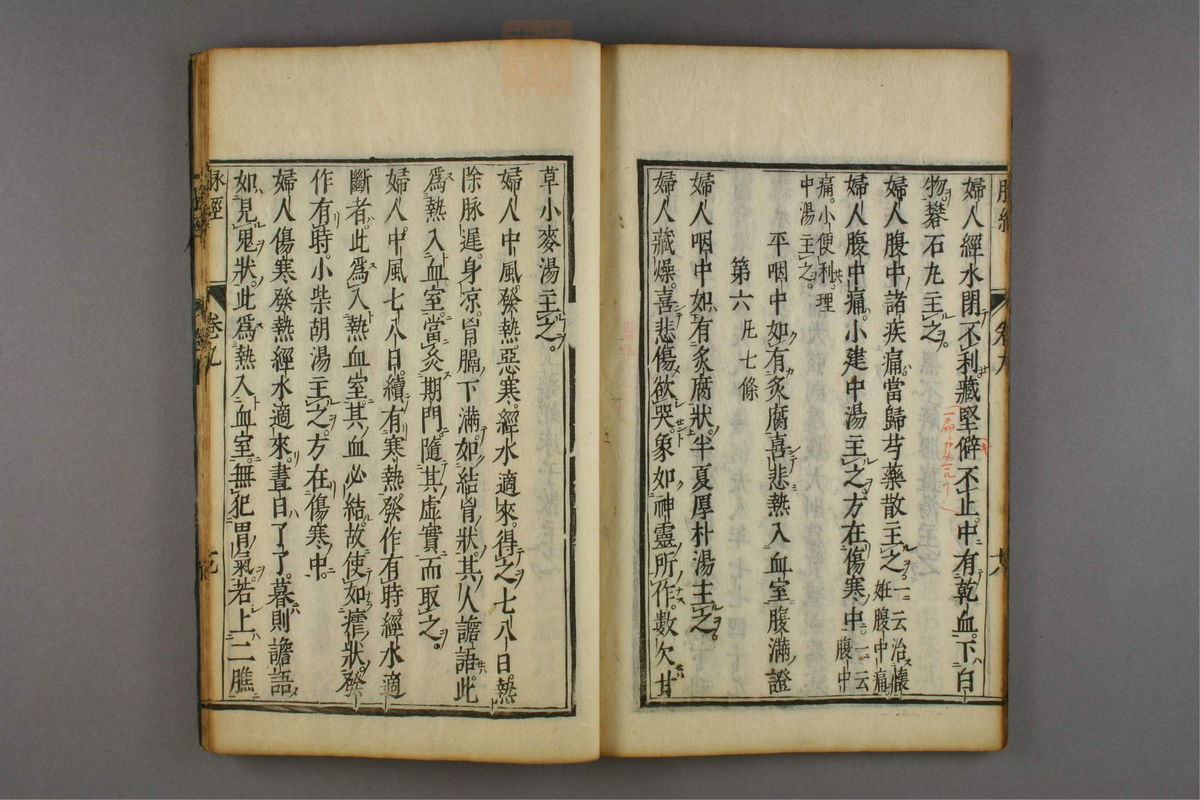 婦人經水閉不利藏堅僻不止中有乾血下白
物礬石丸主之
婦人腹中諸疾痛當歸芍藥散主之一云治懷姙腹中痛
婦人腹中痛小建中湯主之方在傷寒中一云腹中
痛小便利理中湯主之
平咽中如有炙腐喜悲熱入血室腹滿證
第六 凡七條
婦人咽中如有炙腐狀半夏厚朴湯主之
婦人藏燥喜悲傷欲哭象如神靈所作數欠甘
草小麥湯主之
婦人中風發熱惡寒經水適來得之七八日熱
除脉遲身凉胷膈下滿如結胷狀其人譫語此
爲熱入血室當灸期門隨其虛實而取之
婦人中風七八日續有寒熱發作有時經水適
斷者此爲熱入血室其血必結故使如瘧狀發
作有時小柴胡湯主之方在傷寒中
婦人傷寒發熱經水適來晝日了了暮則譫語
如見鬼狀此爲熱入血室無犯胃氣若上二膲
脉經
卷九